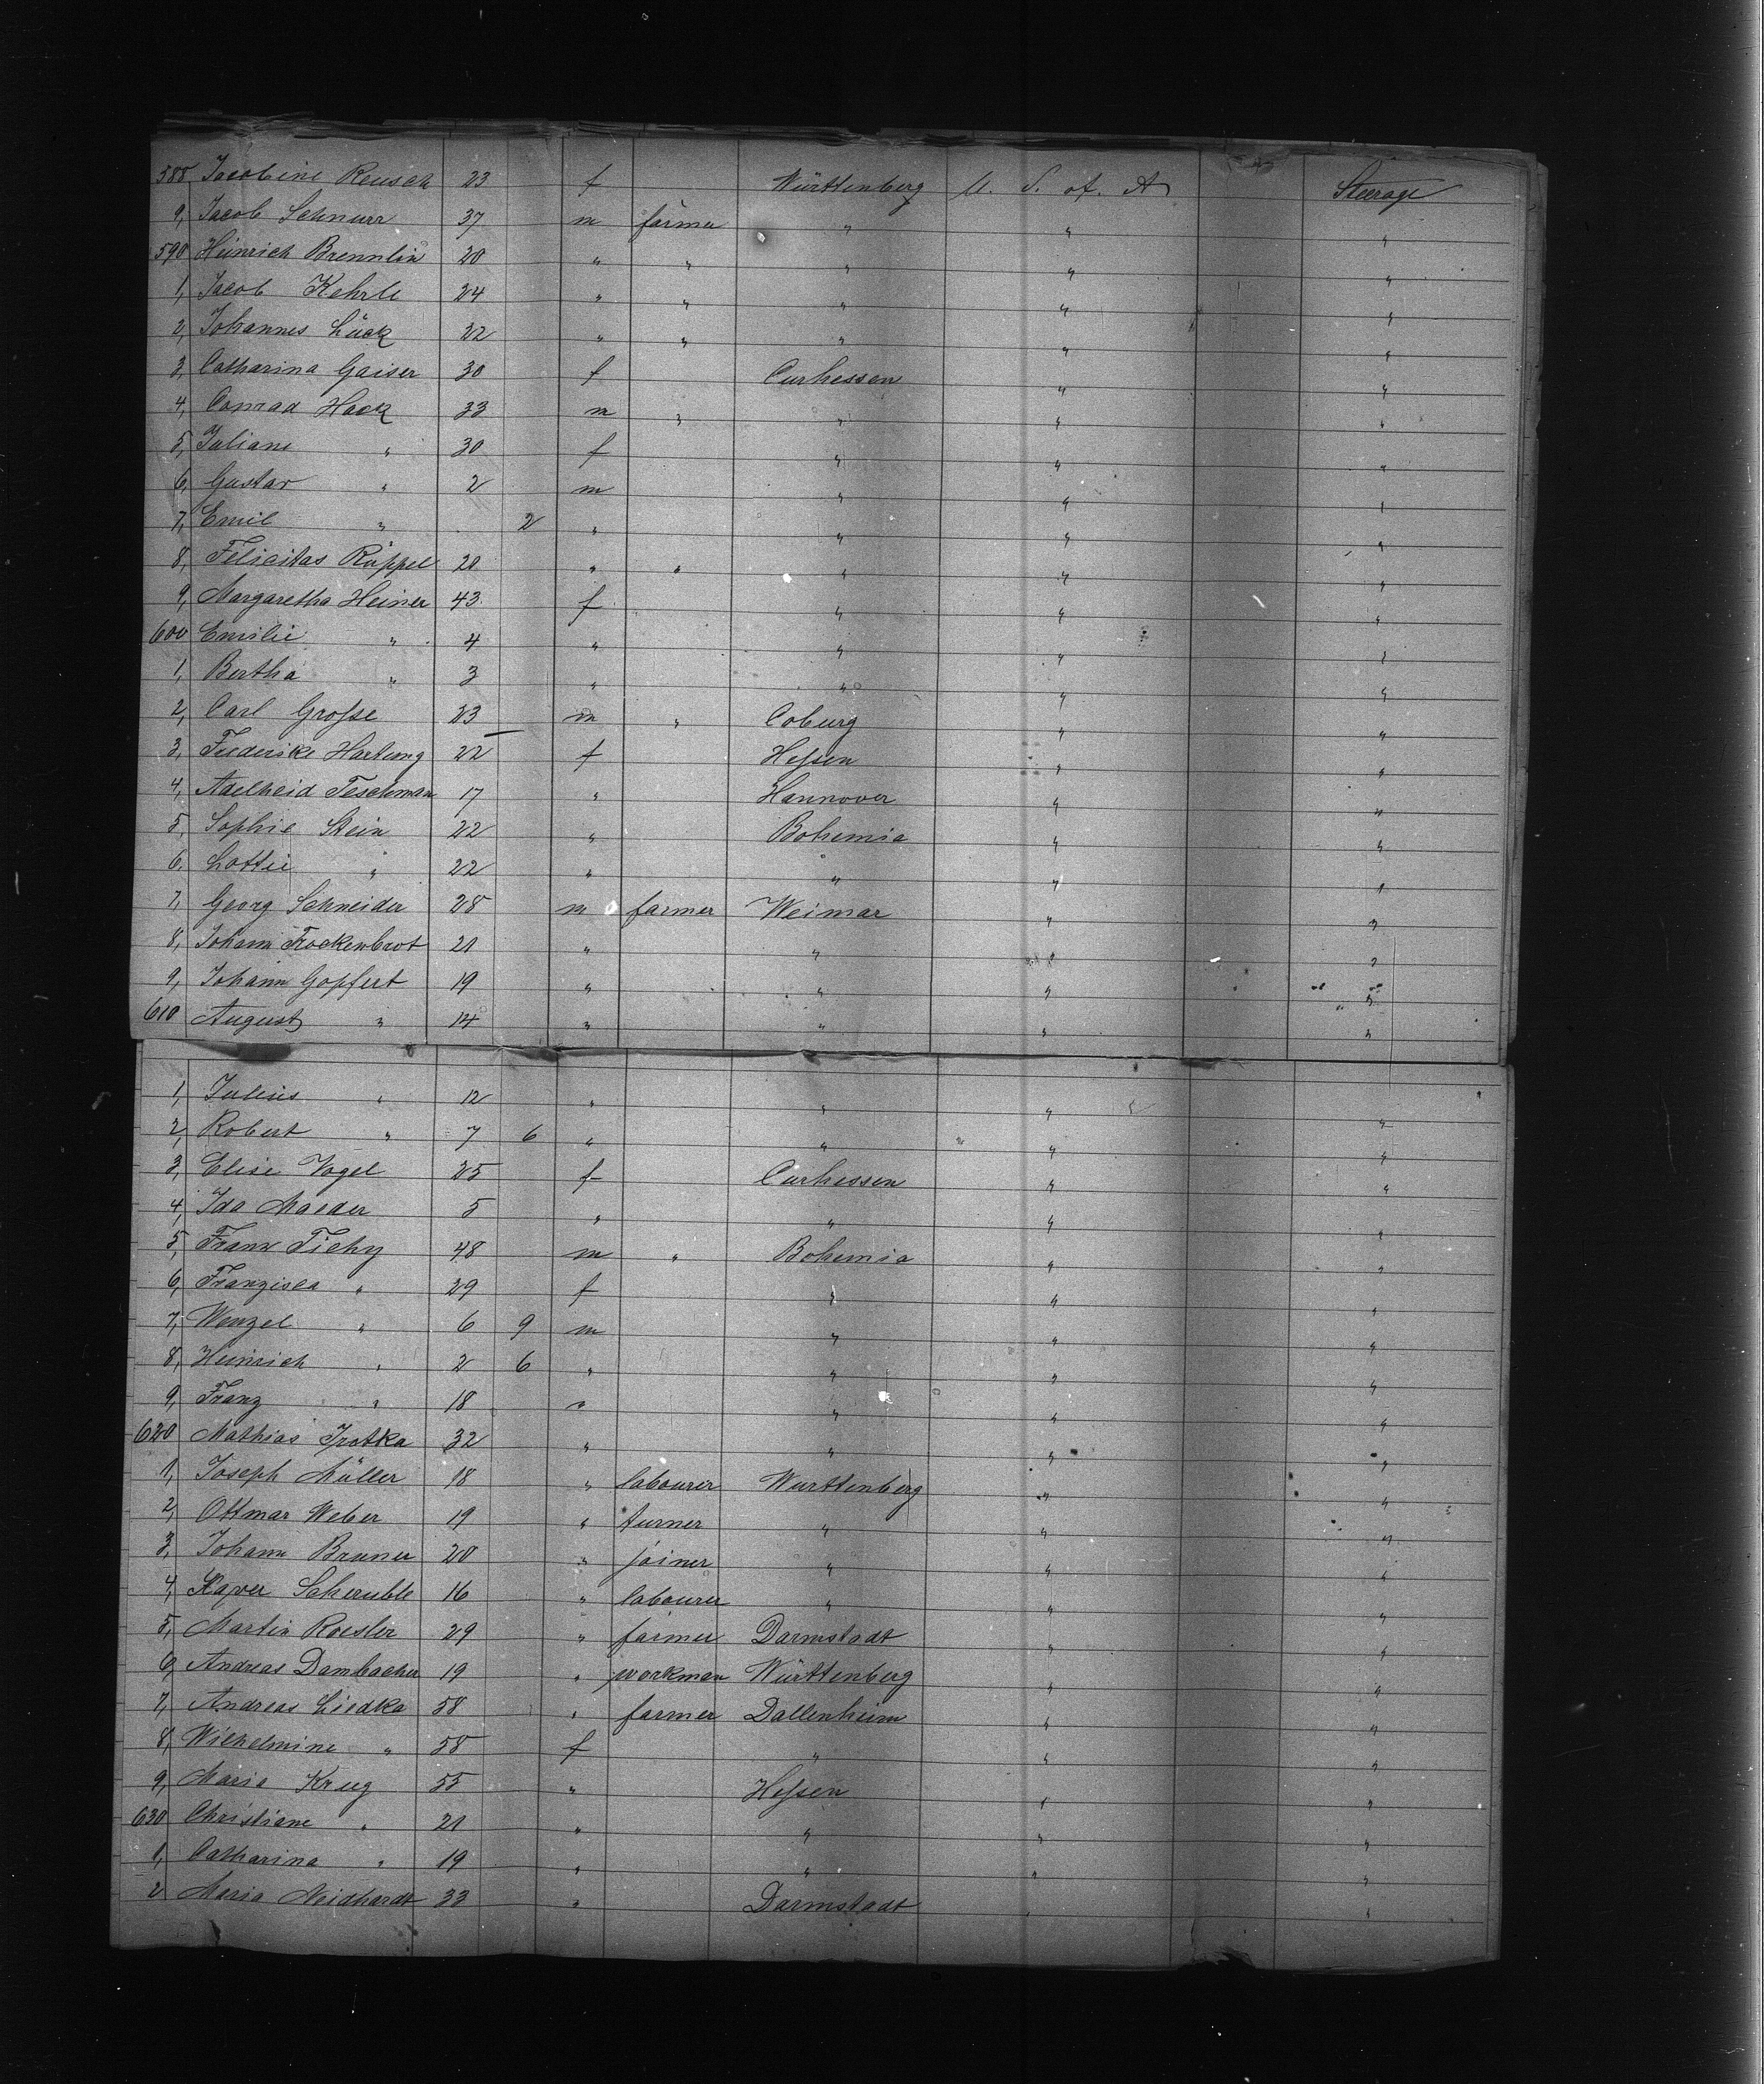 588 Jacobine Reusch 23 f Württenberg U. S. of. A Steerage
9, Jacob Schnurr 37 m farmer " " "
590 Heinrich Brennlin 20 " " " " "
1, Jacob Kehrle 24 " " " " "
2, Johannes Lück 22 " " " " "
3, Catharina Gaiser 30 f Curhessen " "
4, Conrad Hock 33 m " " " "
5, Juliane " 30 f " " "
6, Gustav " 2 m " " "
7, Emil " 2 " " " "
8, Felicitas Rüppel 20 " " " " "
9, Margaretha Heiner 43 f " " "
600 Emilie " 4 " " " "
1, Bertha " 3 " " " "
2, Carl Groſse 23 m " Coburg " "
3, Frederike Hartung 22 f Heſsen " "
4, Adelheid Teschman 17 " Hannover " "
5, Sophie Stein 22 " Bohemia " "
6, Lottie " 22 " " " "
7, Georg Schneider 28 m farmer Weimar " "
8, Johann Trockenbrot 21 " " " "
9, Johann Gopfert 19 " " " "
610 August " 14 " " " "
1, Julius " 12 " " " "
2, Robert " 7 6 " " " "
3, Elise Vogel 25 f Curhessen " "
4, Ida Maeder 5 " " " "
5, Franz Tichy 48 m " Bohemia " "
6, Franzisca " 29 f " " "
7, Wenzel " 6 9 m " " "
8, Heinrich " 2 6 " " " "
9, Franz " 18 " " " "
620 Mathias 32 " " " "
1, Joseph Müller 18 " labourer Wurttenberg " "
2, Ottmar Weber 19 " turner " " "
3, Johann Bruner 20 " joiner " " "
4, Xaver Scheruble 16 " labourer " " "
5, Martin Roesler 29 " farmer Darmstadt " "
6, Andreas Dambacher 19 " workman Württenberg " "
7, Andreas Liedka 58 " farmer Dallenheim " "
8, Wilhelmine " 58 f " " "
9, Maria Krug 55 " Heſsen " "
630 Christiane " 21 " " " "
1, Catharina " 19 " " " "
2 Maria Neidhardt 33 " Darmstadt " "